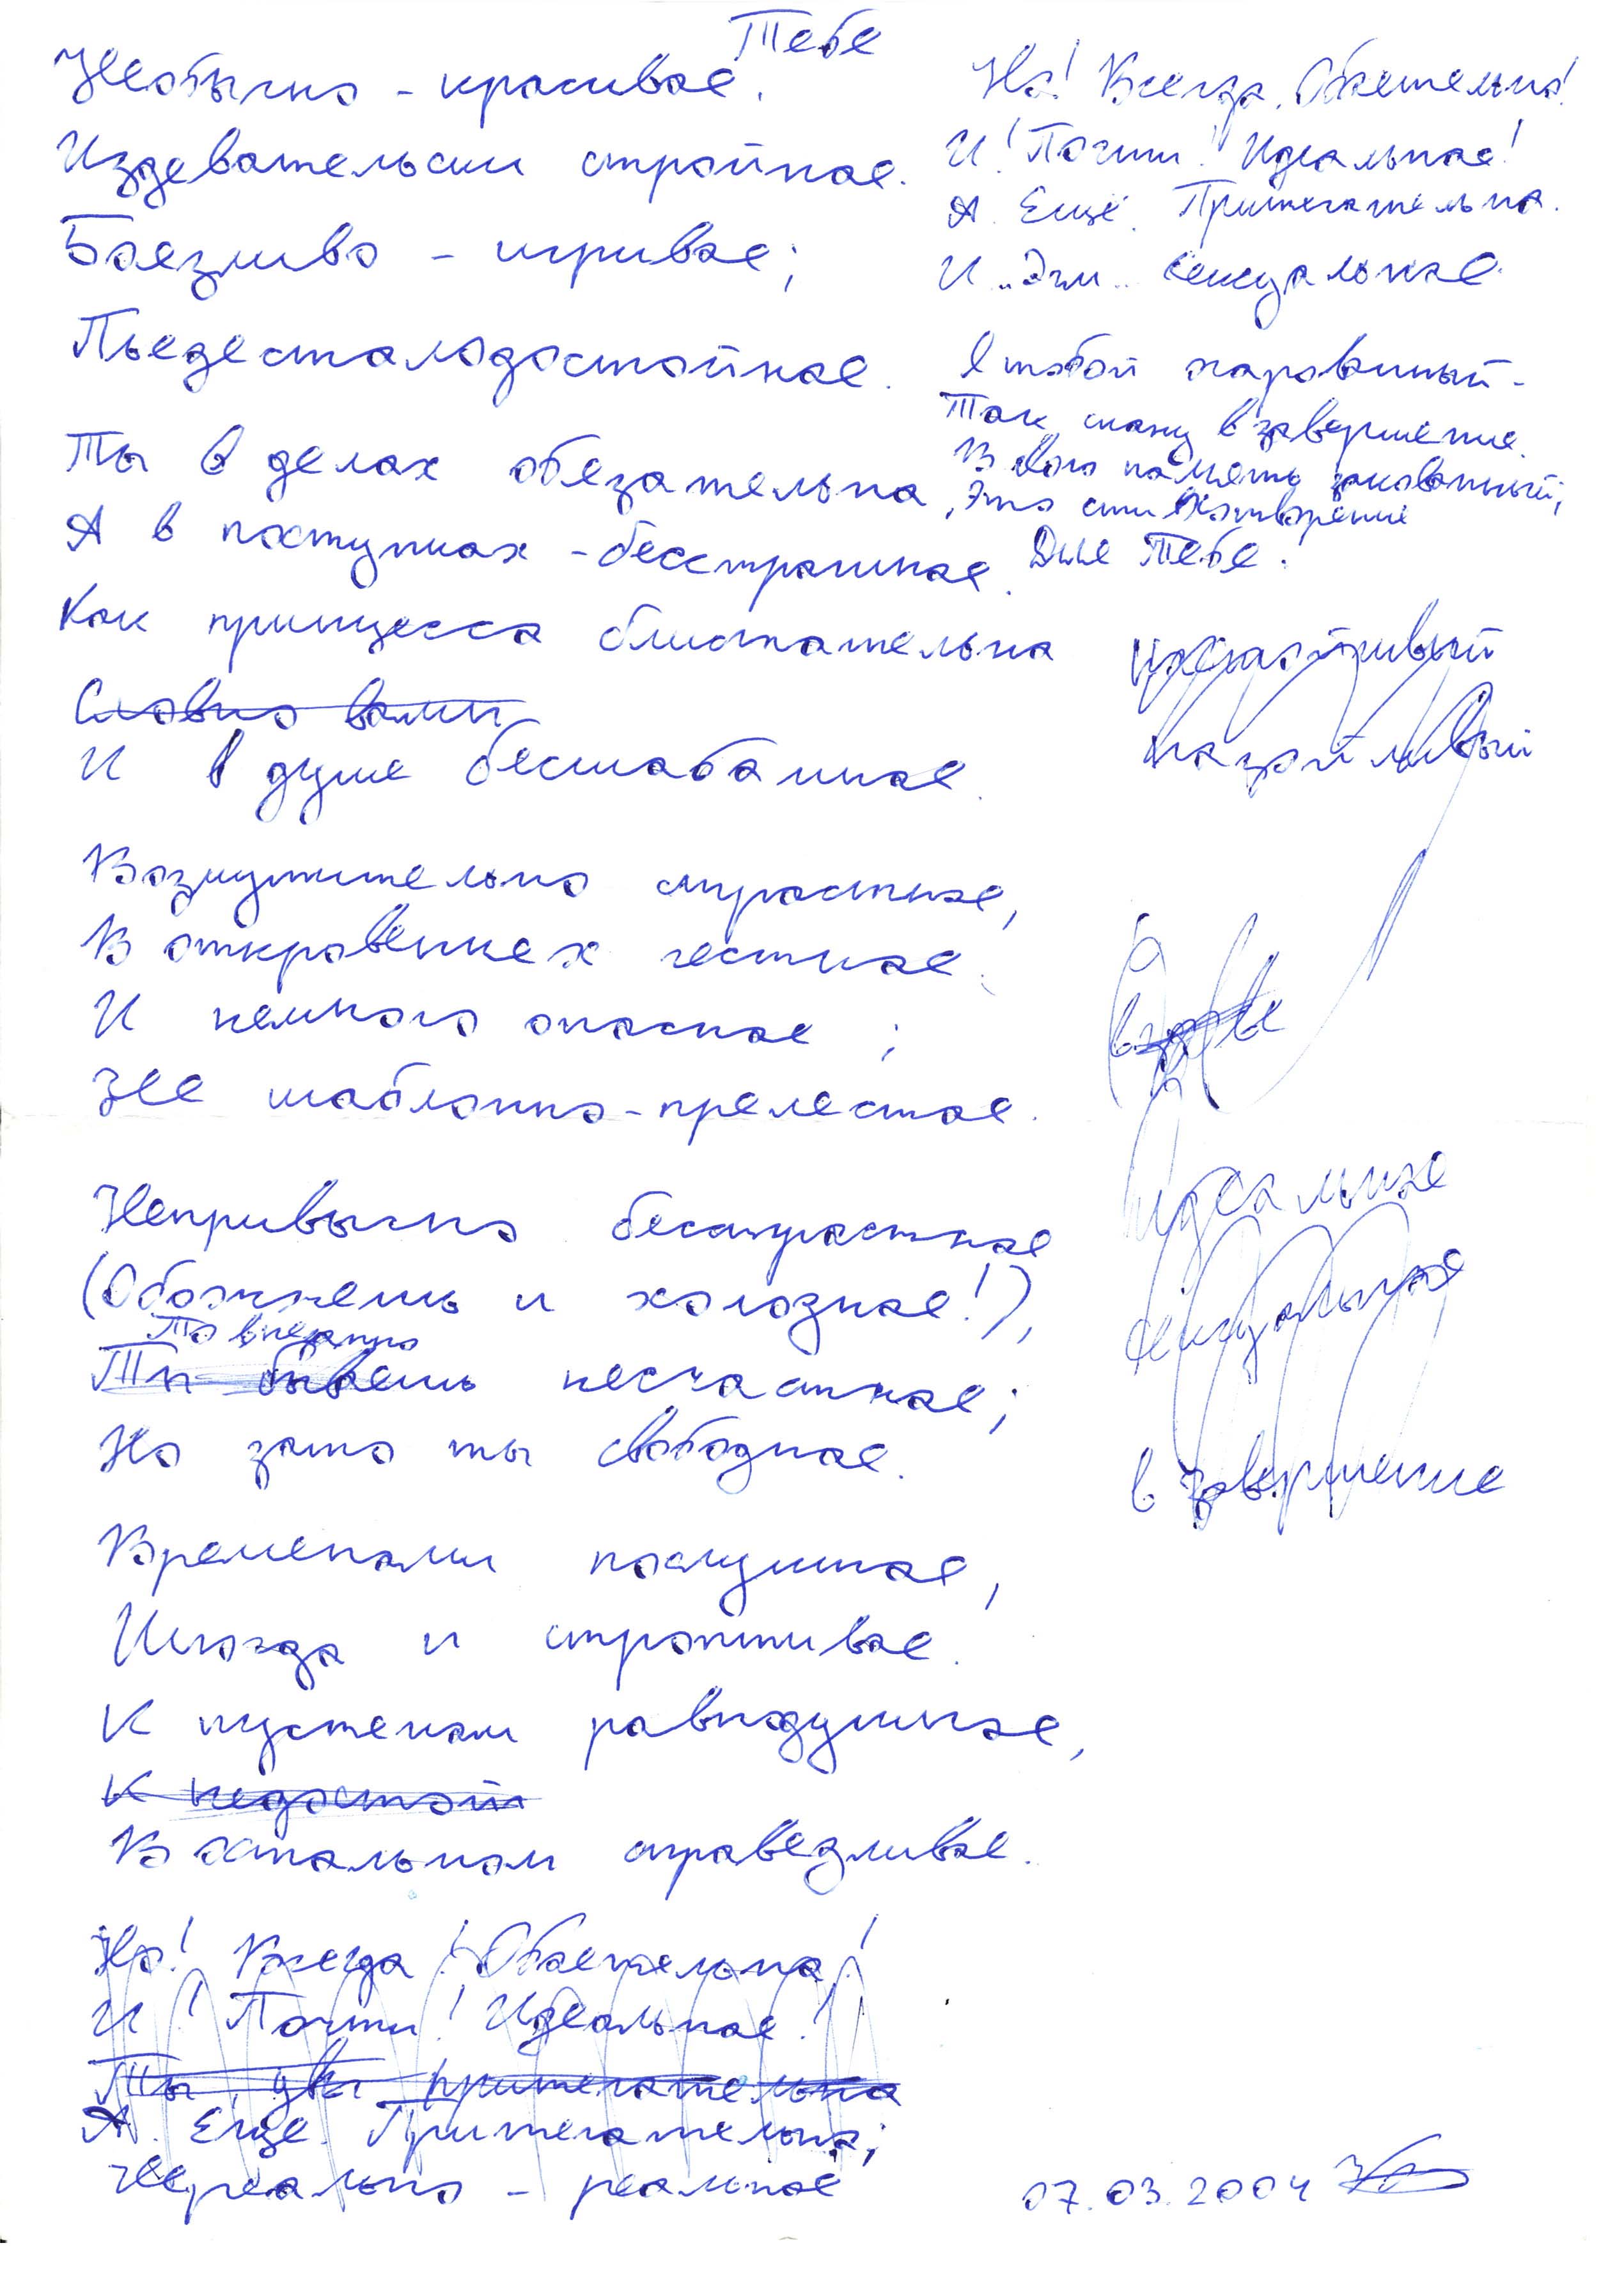 Тебе
Необычно - красивая.
Издевательски стройная.
Боязливо - игривая;
Пьедесталодостойная.
Ты в делах обязательна,
А в поступках - бесстрашная.
Как принцесса блистательна
Словно вамп
И в душе бесшабашная.
Возмутительно страстная,
В откровениях честная.
И немного опасная;
Не шаблонно-прелестная.
Непривычно бесстрастная
(Обожжёшь и холодная!),
То внезапно
Ты бываешь несчастная;
Но зато ты свободная.
Временами послушная,
Иногда и строптивая.
К пустякам равнодушная,
К недостой
В остальном справедливая.
Но! Всегда! Обаятельна!
И! Почти! Идеальная!
Ты увы притягательна
А. Еще. Притягательна;
Нереально - реальная
Но! Всегда. Обаятельна!
И! Почти! Идеальная!
А. Ещё. Притягательна.
И "Эти" сексуальная.
Я тобой очарованный -
Так скажу в завершение.
В твою память закованный;
Это стихотворение
Для Тебе!
настойчивый
назойливый
идеальная
сексуальная
в завершение
07.03.2004